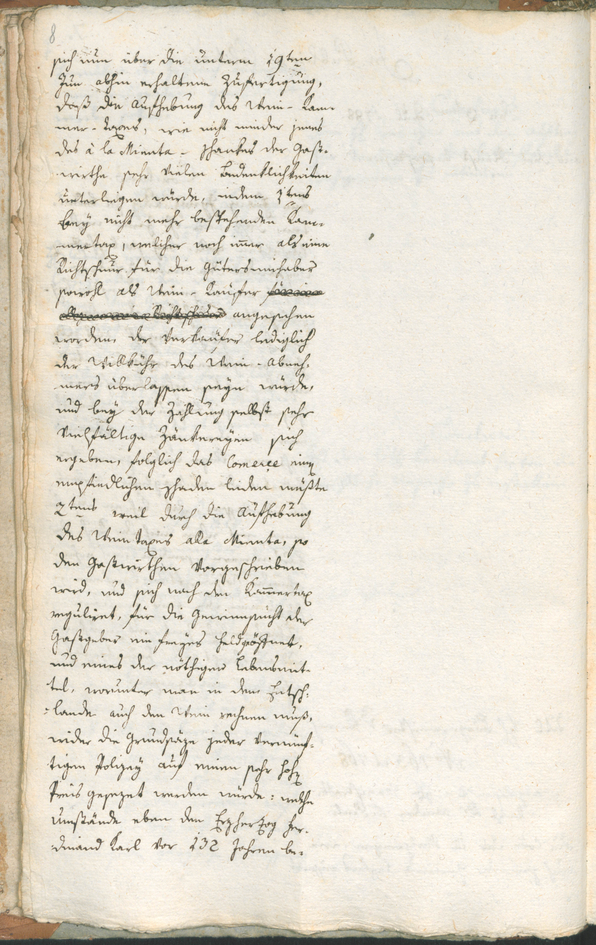 8
sich nun über die unterm 19ten
Jun abhin erhaltene Zufertigung,
daß die Aufhebung des Wein-Kam-
mer-taxes, wie nicht minder jenes
des à la Minuta-schankes der Gast-
wirthe sehr vielen Bedenklichkeiten
unterliegen würde, indem 1tens
bey nicht mehr bestehenden Kam-
mertax, welcher noch immer als eine
Richtschnur für die Gütersinhaber
sowohl als Wein-Kaufer
angesehen
worden, der Verkäufer lediglich
der Willkühr des Wein-Abneh-
mers überlassen seyn würde,
und bey der Zahlung selbst sehr
vielfältige Zänkereyen sich
ergeben, folglich das Comerce einen
empfindlichen schaden leiden müßte
2tens weil durch die Aufhebung
des Weintaxes alla Minuta, so
den Gastwirthen vorgeschrieben
wird, und sich nach den Kammertax
regulirt, für die Gewinnsucht der
Gastgeber ein freyes Feld geöffnet,
und eines der nöthigen Lebensmit-
tel, worunter man in dem Etsch-
lande auch den Wein rechnen muß,
wider die Grundsäze jeder vernünf-
tigen Polizey auf einen sehr hohen
Preis gesezet werden würde: welche
Umstände eben den Erzherzog Fer-
dinand Karl vor 132 Jahren be-